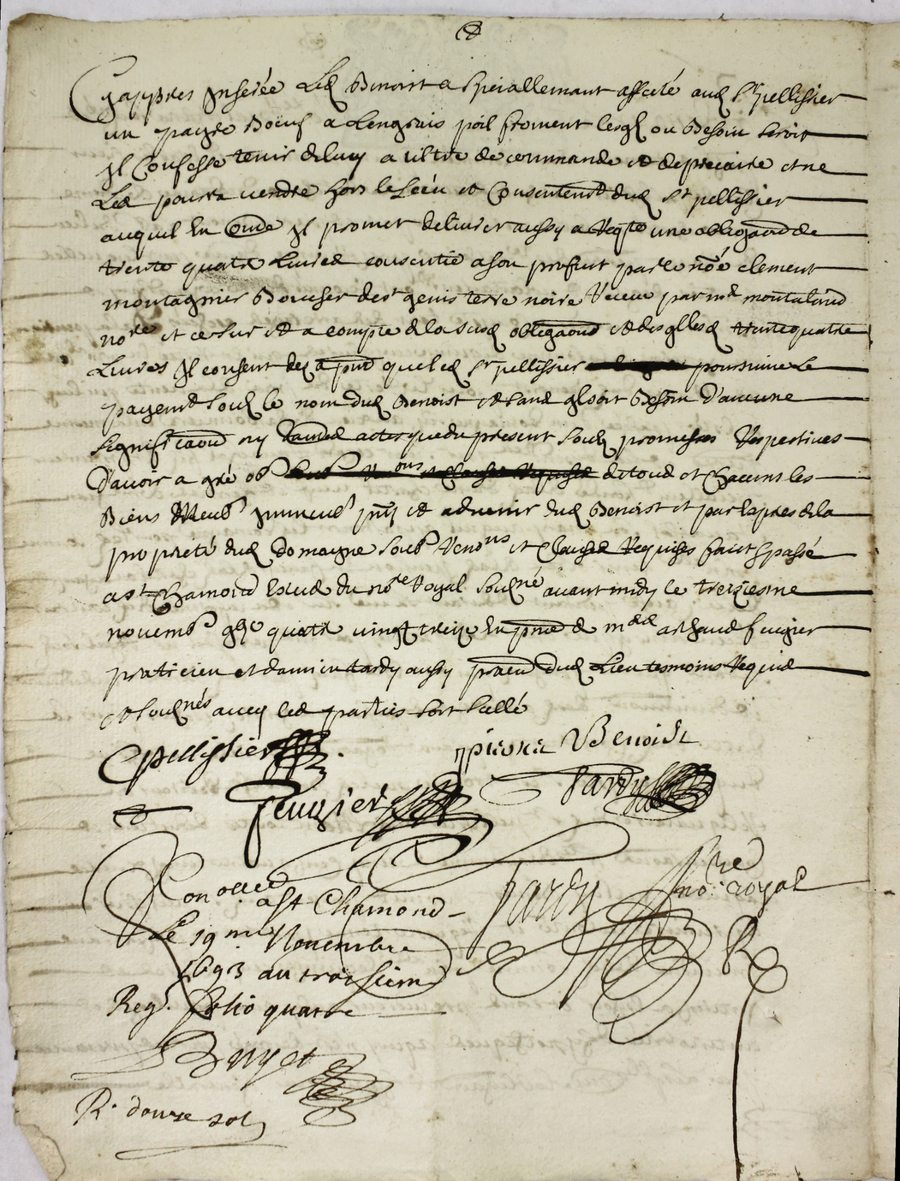 Cy appres Inserée Led Benoist a speciallemant affecté aud Sr pellissier
un payre Boeuf a Lengrais poil froment lesql ou Besoin seroit
Il Confesse tenir deluy a tiltre de commande et de precaire et ne
Led pourra vendre hors le sceu et Consentemt dud Sr pellissier
auquel En Il promet delivrer aussy a reqte une obligaond de
trente quatre Livres consentie a son proffit par le nomé clement
montagnier Boucher de st genis terre noire receue par me montaland
nore et ce sur et a compte de la susd obligaond et desqlles trente quatre
Livres Il consent des a pnt que led Sr pellissier poursuive Le
payemt soubs le nom dud Benoist et sans qlsoit Besoin d'aucune
significaond ny autres actes que du present soubs promesses respectives
D'avoir a gré obon de tous et Chacuns les
Biens meubs Immeubs pnts et advenir dud Benoist et par expres de la
proprieté dud domayne soubs renons et Clauses requises faict & passé
a st Chamond Estude du nore royal soubsné avant midy le treiziesme
novembe gbc quatre vingt treize En pnce de arthaud feugier
praticien et damien tardy aussy praticn dud Lieu tesmoins requis
et soubsnés avecq les parties Sort scellé
CPellissier
pierre Benoist
Feugier
Tardy
Conollé a St Chamond
Tardy nore royal
Le 19me Novembre
1693 au troisiem
Reg. folio quatre
Bruyet
R. douze sols